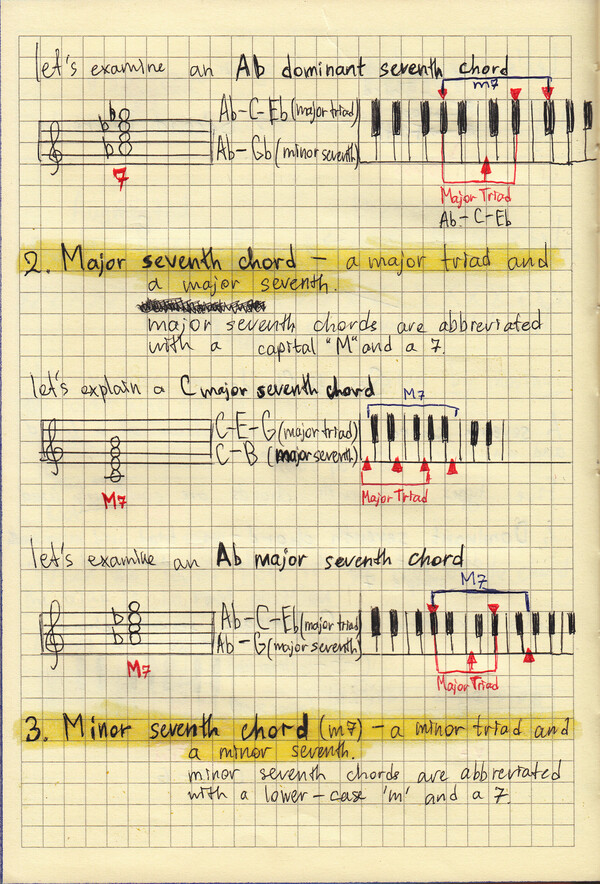 let's examine an Ab dominant seventh chord
m7
Ab-C-Eb (major triad)
Ab-Gb (minor seventh)
7
Major Triad
Ab-C-Eb
2. Major seventh chord - a major triad and
a major seventh.
major seventh chords are abbreviated
with a capital "M" and a 7.
let's explain a C major seventh chord
M7
C-E-G (major triad)
C-B (major seventh)
M7
Major Triad
let's examine an Ab major seventh chord
M7
Ab-C-Eb (major triad)
Ab-G (major seventh)
M7
Major Triad
3. Minor seventh chord (m7) - a minor triad and
a minor seventh.
minor seventh chords are abbreviated
with a lower-case 'm' and a 7.